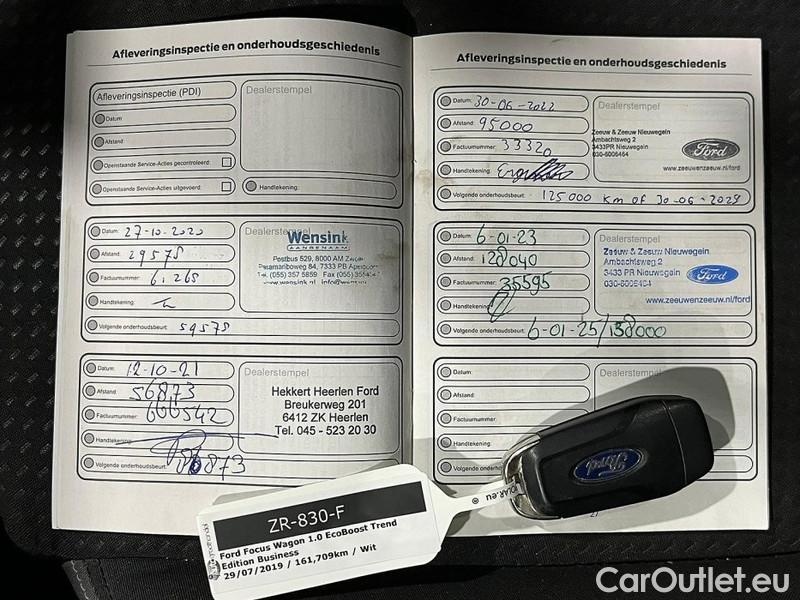 Afleveringsinspectie en onderhoudsgeschiedenis
Afleveringsinspectie (PDI)
Dealerstempel
Datum
Afstand
Openstaande Service-Acties gecontroleerd:
Openstaande Service-Acties uitgevoerd:
Handtekening:
Datum: 27-10-2020
Dealerstempel
Afstand: 29575
Factuurnummer: 61265
Handtekening:
Volgende onderhoudsbeurt: 59575
Wensink
AANBENAAM
Postbus 529, 8000 AM
Paramariboweg 84, 7333 PB Apeldoorn
Tel. (055) 357 5859 Fax (055)
www.wensink.nl
Datum: 12-10-21
Dealerstempel
Afstand: 56873
Factuurnummer: 666542
Handtekening:
Volgende onderhoudsbeurt: 86873
Hekkert Heerlen Ford
Breukerweg 201
6412 ZK Heerlen
Tel. 045 - 523 20 30
Afleveringsinspectie en onderhoudsgeschiedenis
Datum: 30-06-2022
Dealerstempel
Afstand: 95000
Factuurnummer: 33320
Handtekening:
Volgende onderhoudsbeurt: 125000 km of 30-06-2024
Zeeuw & Zeeuw Nieuwegein
Ambachtsweg 2
3433PR Nieuwegein
030-6005464
Ford
www.zeeuwenzeeuw.nl/ford
Datum: 6-01-23
Dealerstempel
Afstand: 128040
Factuurnummer: 35595
Handtekening:
Volgende onderhoudsbeurt: 6-01-25/158000
Zeeuw & Zeeuw Nieuwegein
Ambachtsweg 2
3433 PR Nieuwegein
030-6005464
Ford
www.zeeuwenzeeuw.nl/ford
Datum:
Dealerstempel
Afstand:
Factuurnummer:
Handtekening:
Volgende onderhoudsbeurt:
Ford
ZR-830-F
Ford Focus Wagon 1.0 EcoBoost Trend
Edition Business
29/07/2019 / 161,709km / Wit
27
CarOutlet.eu